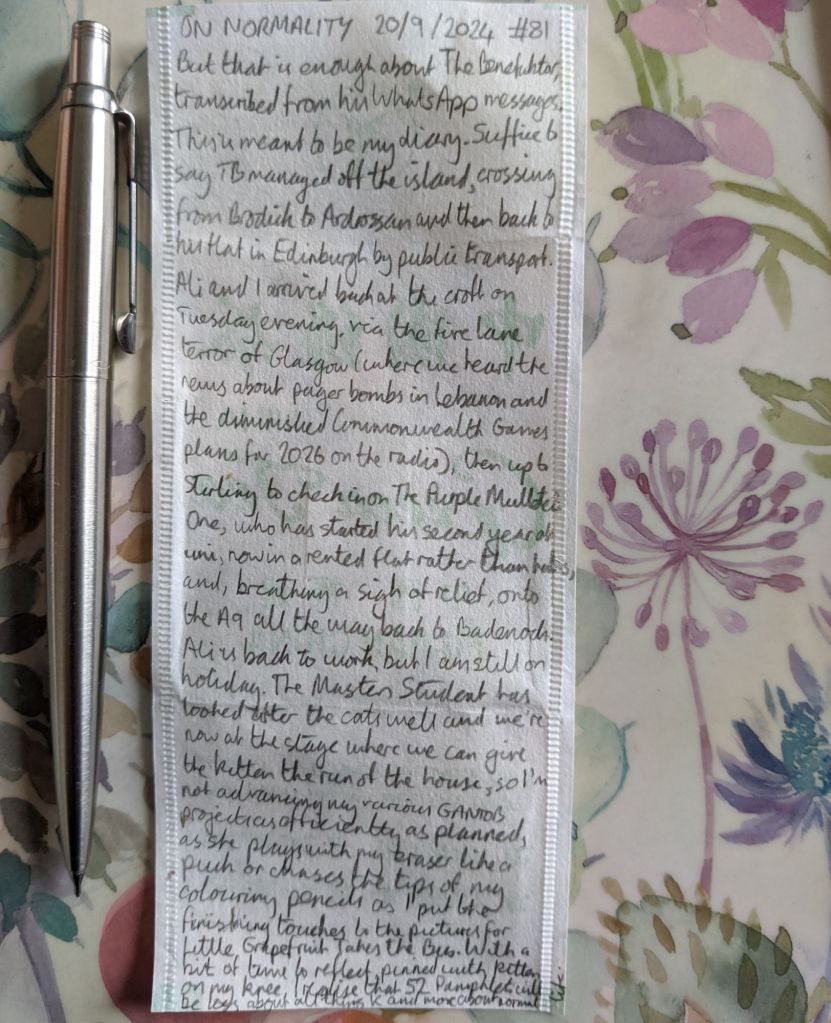 ON NORMALITY 20/9/2024 #81
But that is enough about The Benefuhtor,
transcribed from his WhatsApp messages.
This is meant to be my diary. Suffice to
say TB managed off the island, crossing
from Brodick to Ardrossan and then back to
his flat in Edinburgh by public transport.
Ali and I arrived back at the croft on
Tuesday evening, via the five lane
terror of Glasgow (where we heard the
news about pager bombs in Lebanon and
the diminished Commonwealth Games
plans for 2026 on the radio), then up to
Stirling to check in on The Purple Mulleted
One, who has started his second year at
uni, now in a rented flat rather than halls,
and, breathing a sigh of relief, onto
the A9 all the way back to Badenoch.
Ali is back to work, but I am still on
holiday. The Masters Student has
looked after the cats well and we're
now at the stage where we can give
the kitten the run of the house, so I'm
not advancing my various GANTOB
projects as efficiently as planned,
as she plays with my eraser like a
puck or chases the tips of my
colouring pencils as I put the
finishing touches to the pictures for
Little Grapefruit Takes the Bus. With a
bit of time to reflect, pinned with kitten
on my knee, I realise that 52 Pamphlets will
be less about all things K and more about normal
life